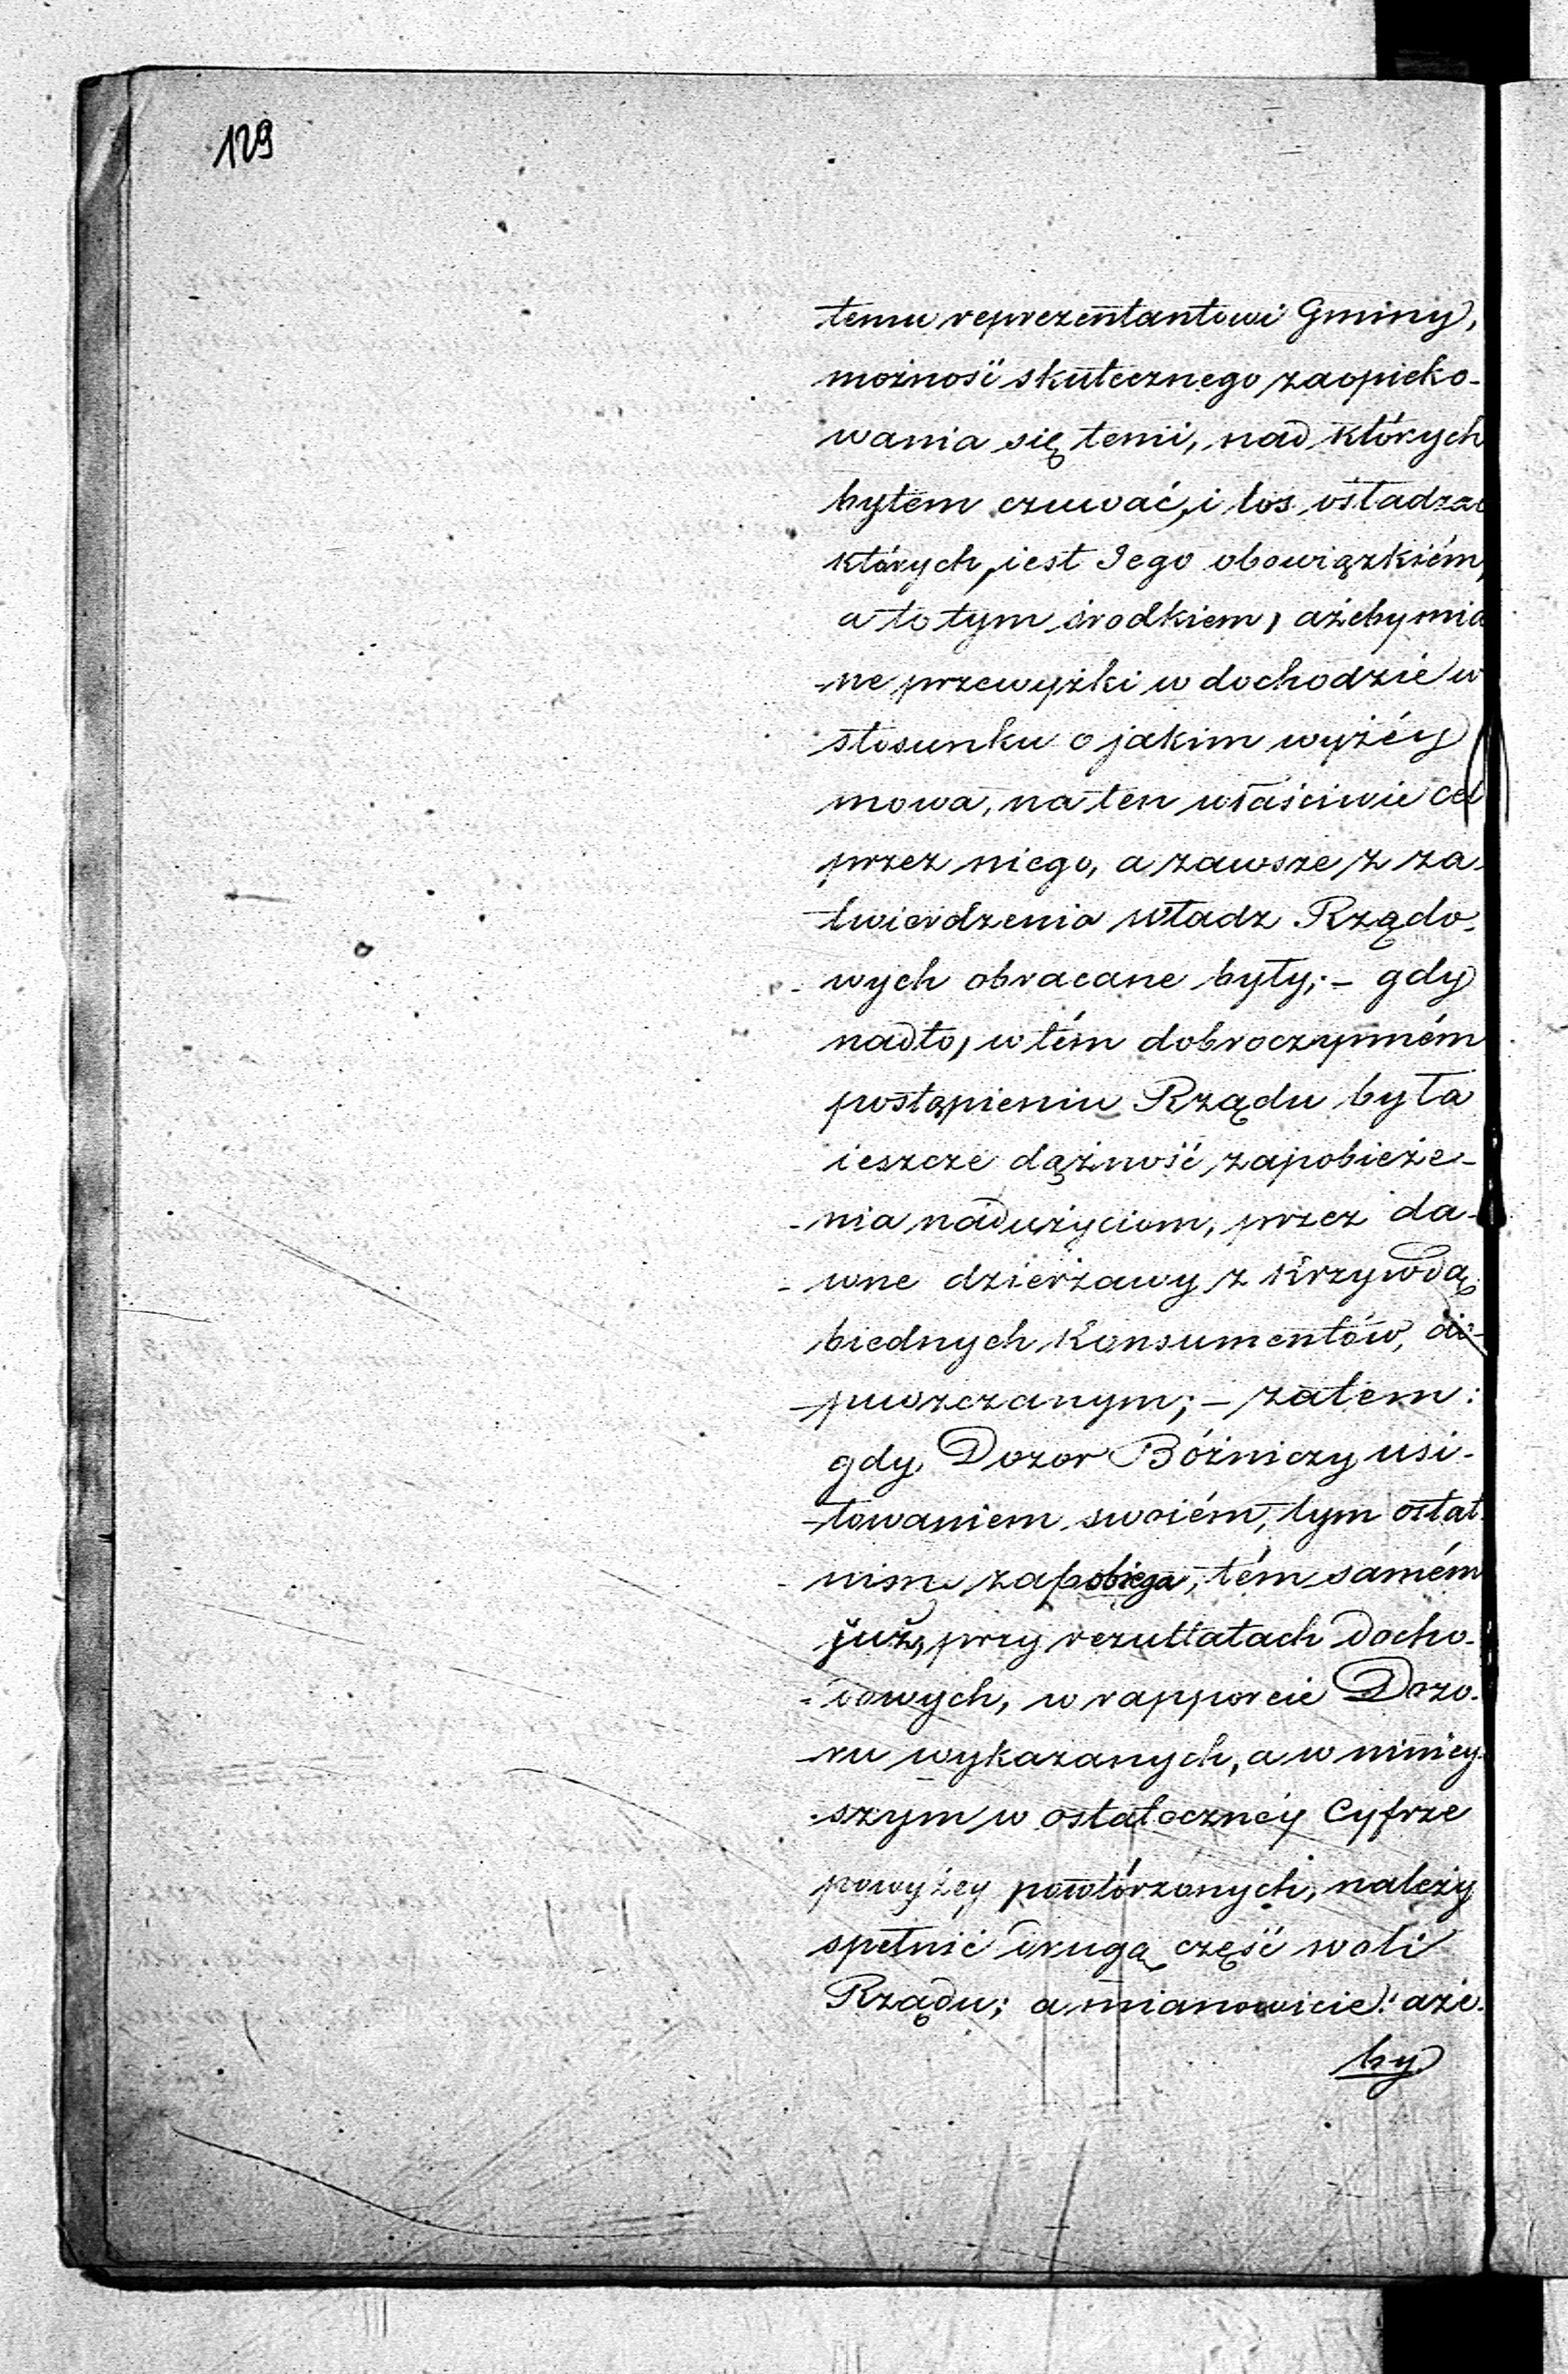 129
temu reprezentantowi Gminy,
możność skutecznego zaopieko-
wania się temi, nad których
bytem czuwać, i los osładzać
których, iest Jego obowiązkiém,
a to tym środkiem, ażeby mia
-ne przewyżki w dochodzie w
stosunku o jakim wyżéy
mowa, na ten właściwie cel
przez niego, a zawsze z za-
twierdzenia władz Rządo-
wych obracane były; - gdy
nadto, w tém dobroczynném
postąpieniu Rządu była
ieszcze dążność zapobieże-
-nia nadużyciom, przez da-
-wne dzierżawy z krzywdą
biednych Konsumentów, do-
-puszczanym; - zatem:
gdy Dozor Bóżniczy usi-
-łowaniem swoiém, tym ostat
-nim zapobiega, tém samém
już, przy rezultatach docho-
-dowych, w rapporcie Dozo-
-ru wykazanych, a w niniey-
-szym w ostateczney Cyfrze
powyżey powtórzonych, należy
spełnić drugą część woli
Rządu; a mianowicie: aże-
by